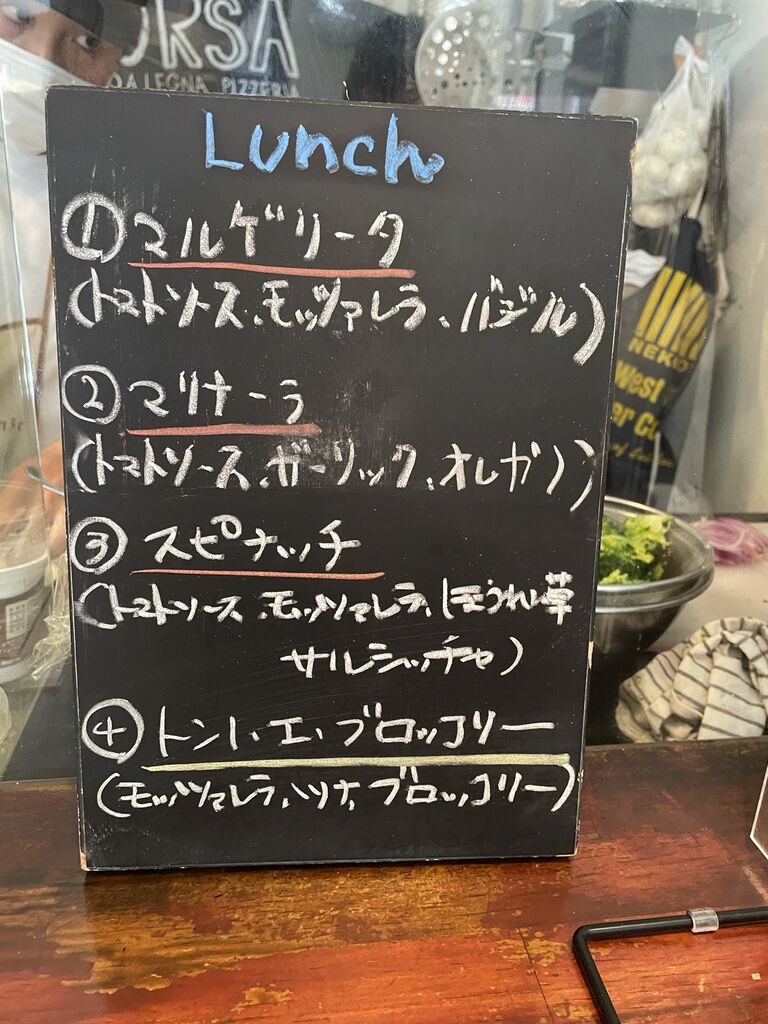 ORSA
LEGNA PIZZERIA
Lunch
① マルゲリータ
(トマトソース、モッツァレラ、バジル)
② マリナーラ
(トマトソース、ガーリック、オレガノ)
③ スピナッチ
(トマトソース、モッツァレラ、ほうれん草
サルシッチャ)
④ トンノ・エ・ブロッコリー
(モッツァレラ、ツナ、ブロッコリー)
NEKO
West
er Co